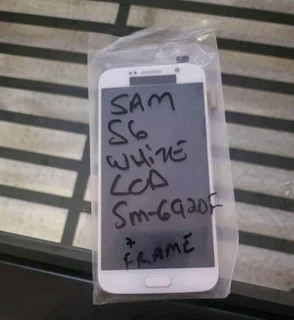 SAM
S6
WHITE
LCD
SM-G920F
+
FRAME